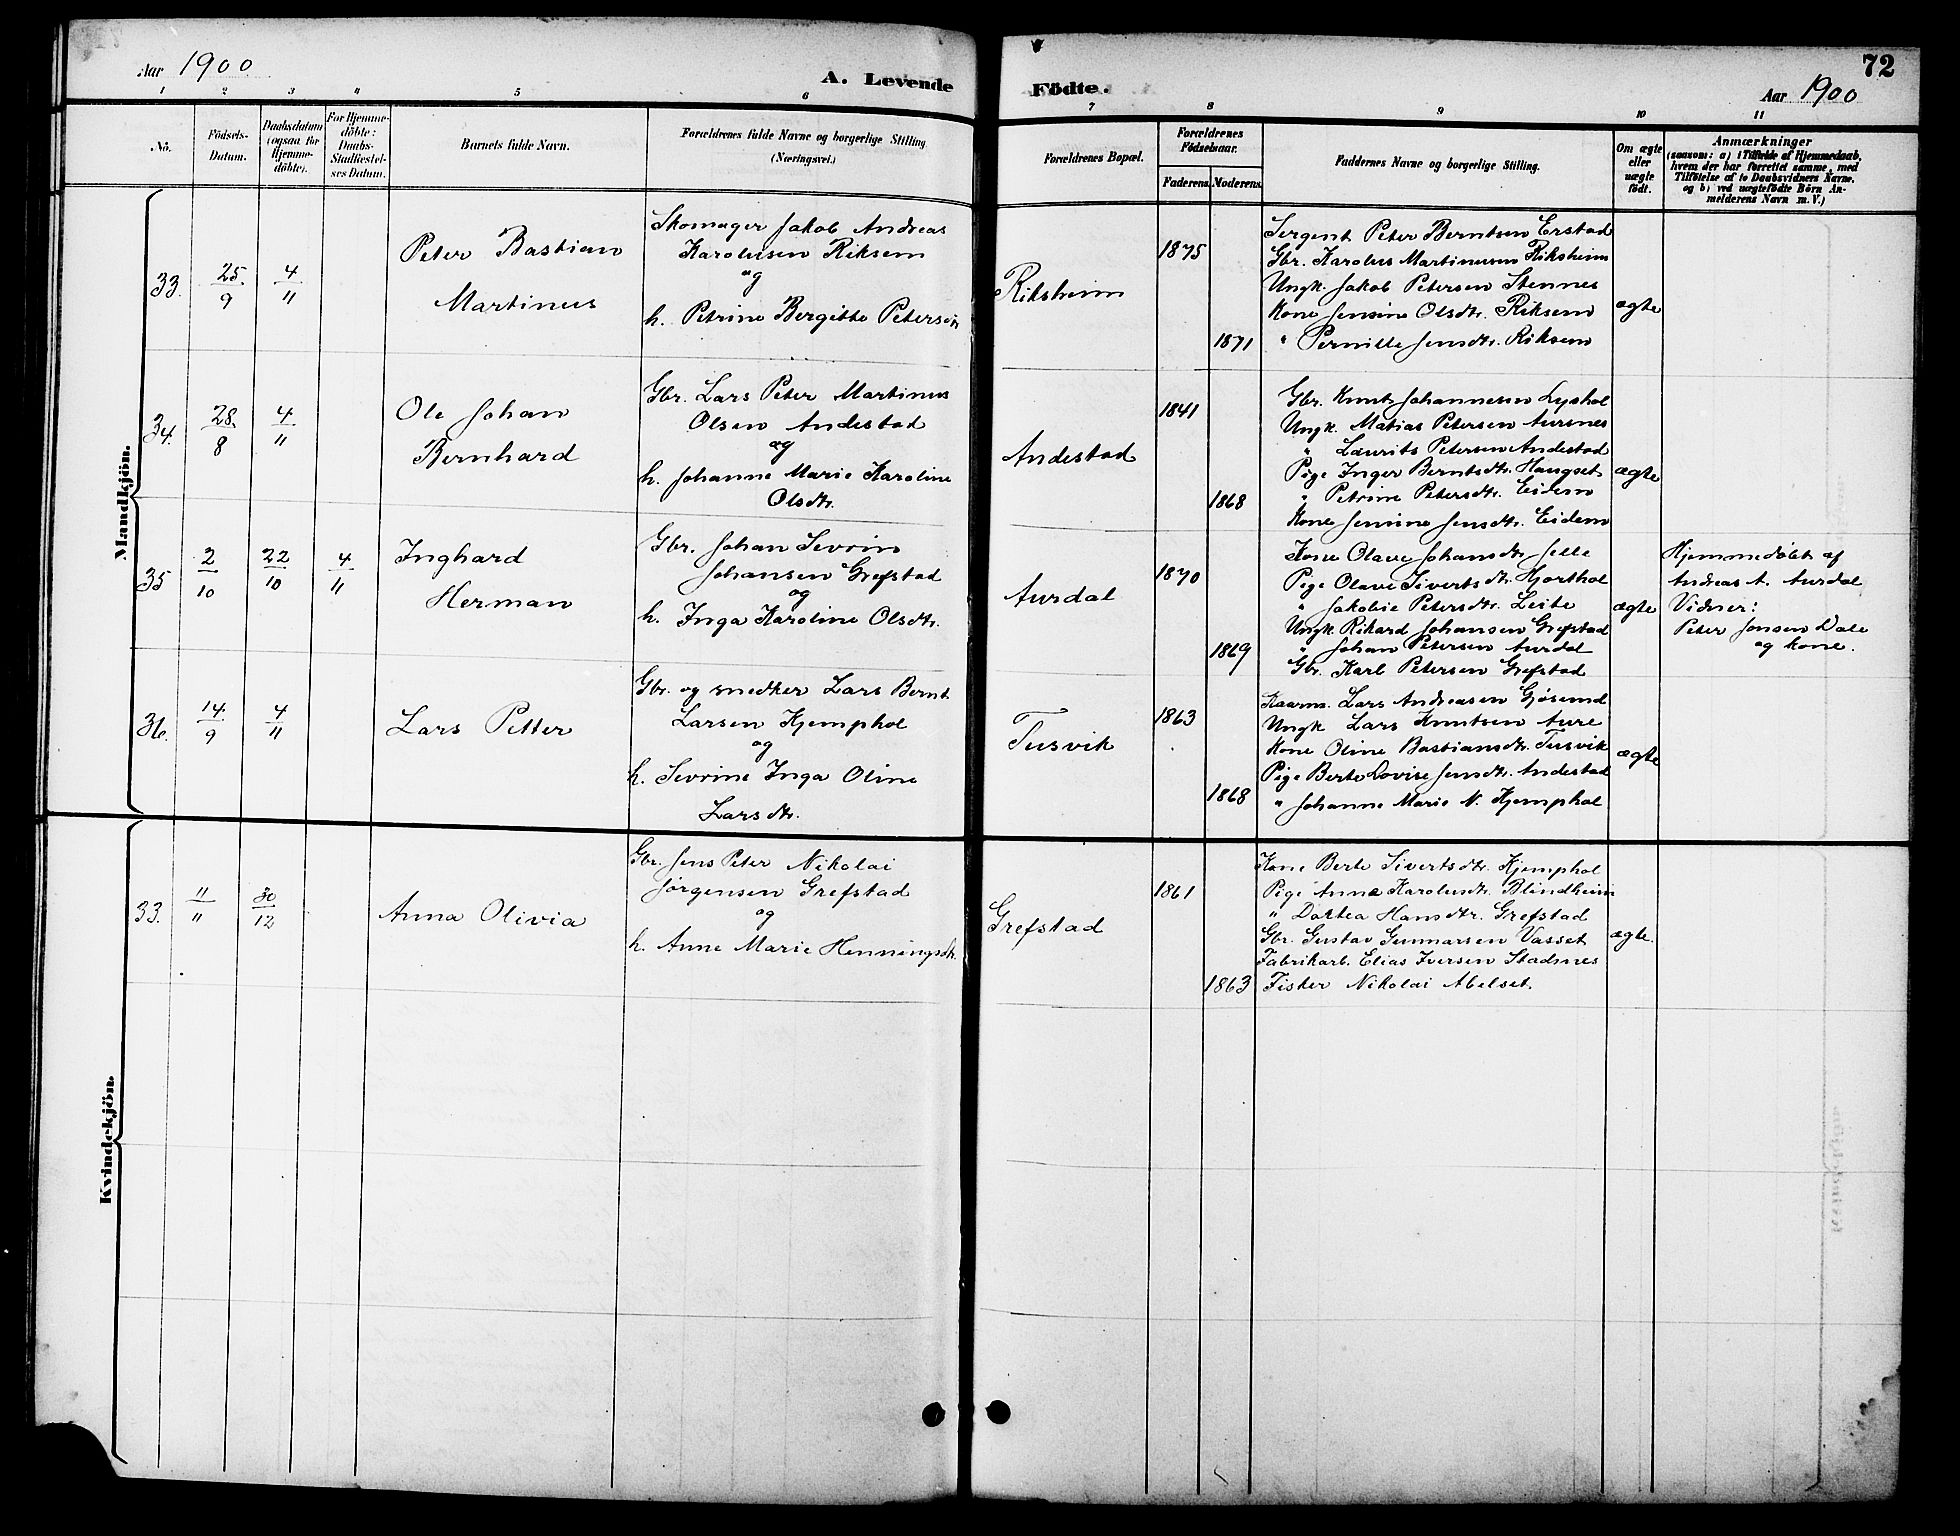 Aar 1900
A. Levende
Födte.
72
Aar 1900
1 2 3 4 5 6 7 8 9 10 11
No.
Födsels-Datum.
Daabsdatum (ogsaa for Hjemme-döbte).
For Hjemme-döbte: Daabs-Stadfæstel-ses Datum.
Barnets fulde Navn.
Forældrenes fulde Navne og borgerlige Stilling (Næringsvei.)
Forældrenes Bopæl.
Forældrenes Födselsaar.
Faderens. Moderens.
Faddernes Navne og borgerlige Stilling.
Om ægte eller uægte födt.
Anmærkninger
(saasom: a) i Tilfælde af Hjemmedaab,
hvem der har forrettet samme, med
Tilföielse af to Daabsvidners Navne,
og b) ved uægtefödte Börn An-
melderens Navn m. V.)
Mandkjön.
33. 25/9 4/11
Peter Bastian
Martinus
Skomager Jakob Andreas
Karolusen Riksem
og
h. Petrine Bergitte Petersen
Riksheim
1875
1871
Sergent Peter Berntsen Erstad
Gbr. Karolus Martinusen Riksheim
Ungk. Jakob Petersen Stennes
Kone Jensine Olsdtr. Riksem
" Pernille Jensdtr. Riksem
ægte
34. 28/8 4/11
Ole Johan
Bernhard
Gbr. Lars Peter Martinus
Olsen Andestad
og
h. Johanne Marie Karoline
Olsdtr.
Andestad
1841
1868
Gbr. Knut Johannesen Lyshol
Ungk. Matias Petersen Aursnes
" Laurits Petersen Andestad
Pige Inger Berntsdtr. Haugset
" Petrine Petersdtr. Eidem
Kone Jensine Jensdtr. Eidem
ægte
35 2/10 22/10 4/11
Inghard
Herman
Gbr. Johan Sevrin
Johansen Grefstad
og
h. Inga Karoline Olsdtr.
Aurdal
1870
1869
Kone Olave Johansdtr. Jelle
Pige Olave Sivertsdtr. Hjorthol
" Jakobie Petersdtr. Leite
Ungk. Rikard Johansen Grefstad
" Johan Petersen Aurdal
Gbr. Karl Petersen Grefstad
ægte
Hjemmedøbt af
Andreas A. Aurdal
Vidner:
Peter Jensen Dale
og kone.
36. 14/9 4/11
Lars Petter
Gbr. og snedker Lars Bernt
Larsen Kjemphol
og
h. Sevrine Inga Oline
Larsdtr.
Tusvik
1863
1868
Kaarm. Lars Andreasen Gjøsund
Ungk Lars Knutsen Aure
Kone Oline Bastiansdtr. Tusvik
Pige Berte Lovise Jensdtr. Andestad
" Johanne Marie N. Kjemphol
ægte
Kvindekjön.
33. 11/11 30/12
Anna Olivia
Gbr. Jens Peter Nikolai
Jørgensen Grefstad
og
h. Anne Marie Henningsdtr.
Grefstad
1861
1863
Kone Berte Sivertsdtr. Kjemphol
Pige Anna Karolusdtr. Blindheim
" Dortea Hansdtr. Grefstad
Gbr. Gustav Gunnarsen Vasset
Fabrikarb. Elias Iversen Stadsnes
Fisker Nikolai Abelset.
ægte.